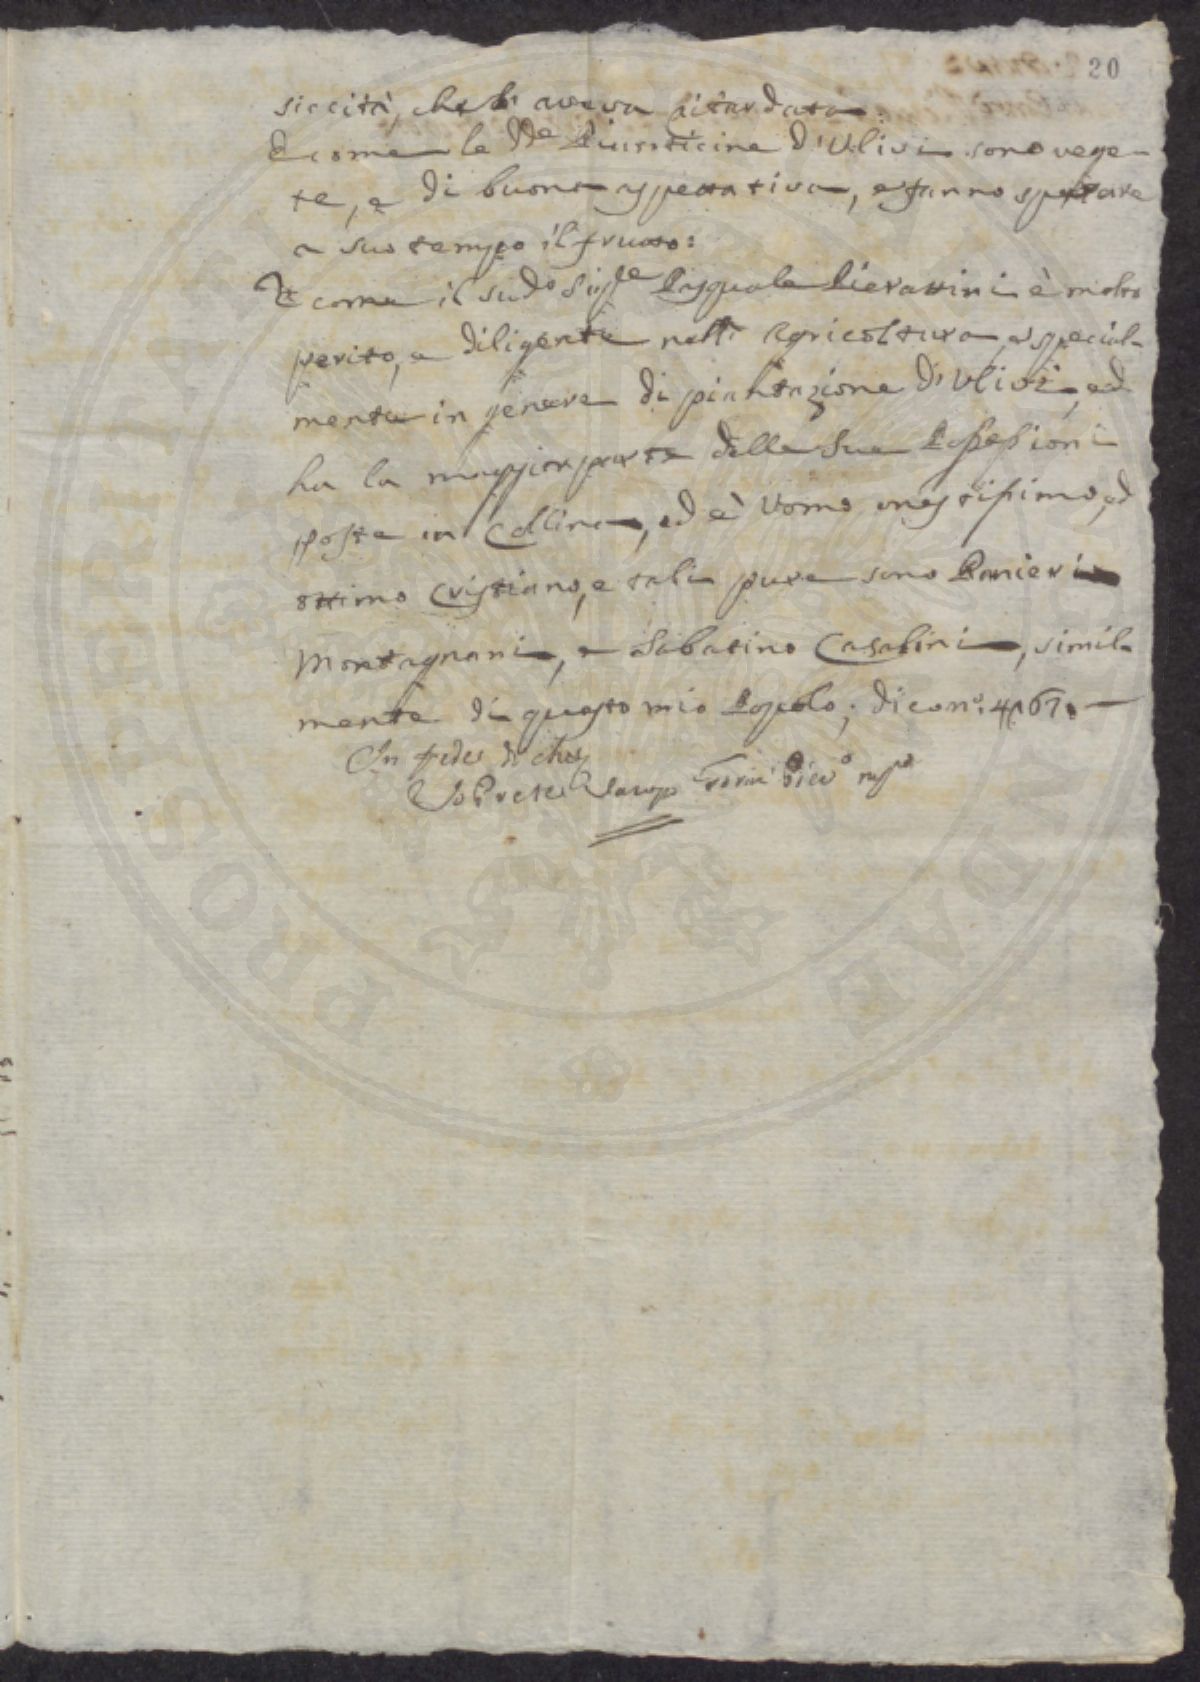 20
siccità, che li aveva ritardata
E come le dde Pianticine d'Ulivi sono vege-
te, e di buona aspettativa, e fanno sperare
a suo tempo il frutto:
E come il sudo Sigre Pasquale Pierattini è molto
perito, e diligente nell' agricoltura, e special-
mente in genere di piantazione d'Ulivi, ed
ha la maggior parte delle sue Possessioni
poste in Collina, ed è Uomo onestissimo, ed
ottimo Cristiano, e tali pure sono Ranieri
Montagnani, e Sabatino Casalini, simil-
mente di questo mio Popolo; dico no: 4167.
In fede di che
Io Prete
PROSPERITATI PUBLICAE